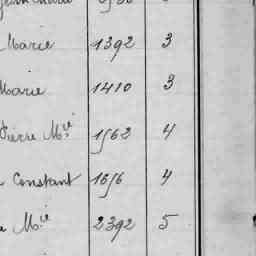 Marie 1392 3
Marie 1410 3
Pierre M.ie 1562 4
Constant 1656 4
M.ie 2392 5